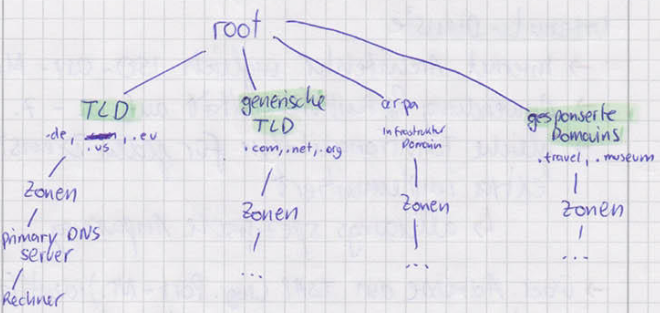 root
TLD
.de, .us, .eu
Zonen
primary DNS
server
Rechner
generische
TLD
.com, .net, .org
Zonen
...
arpa
Infrastruktur
Domain
Zonen
...
gesponserte
Domains
.travel, .museum
Zonen
...